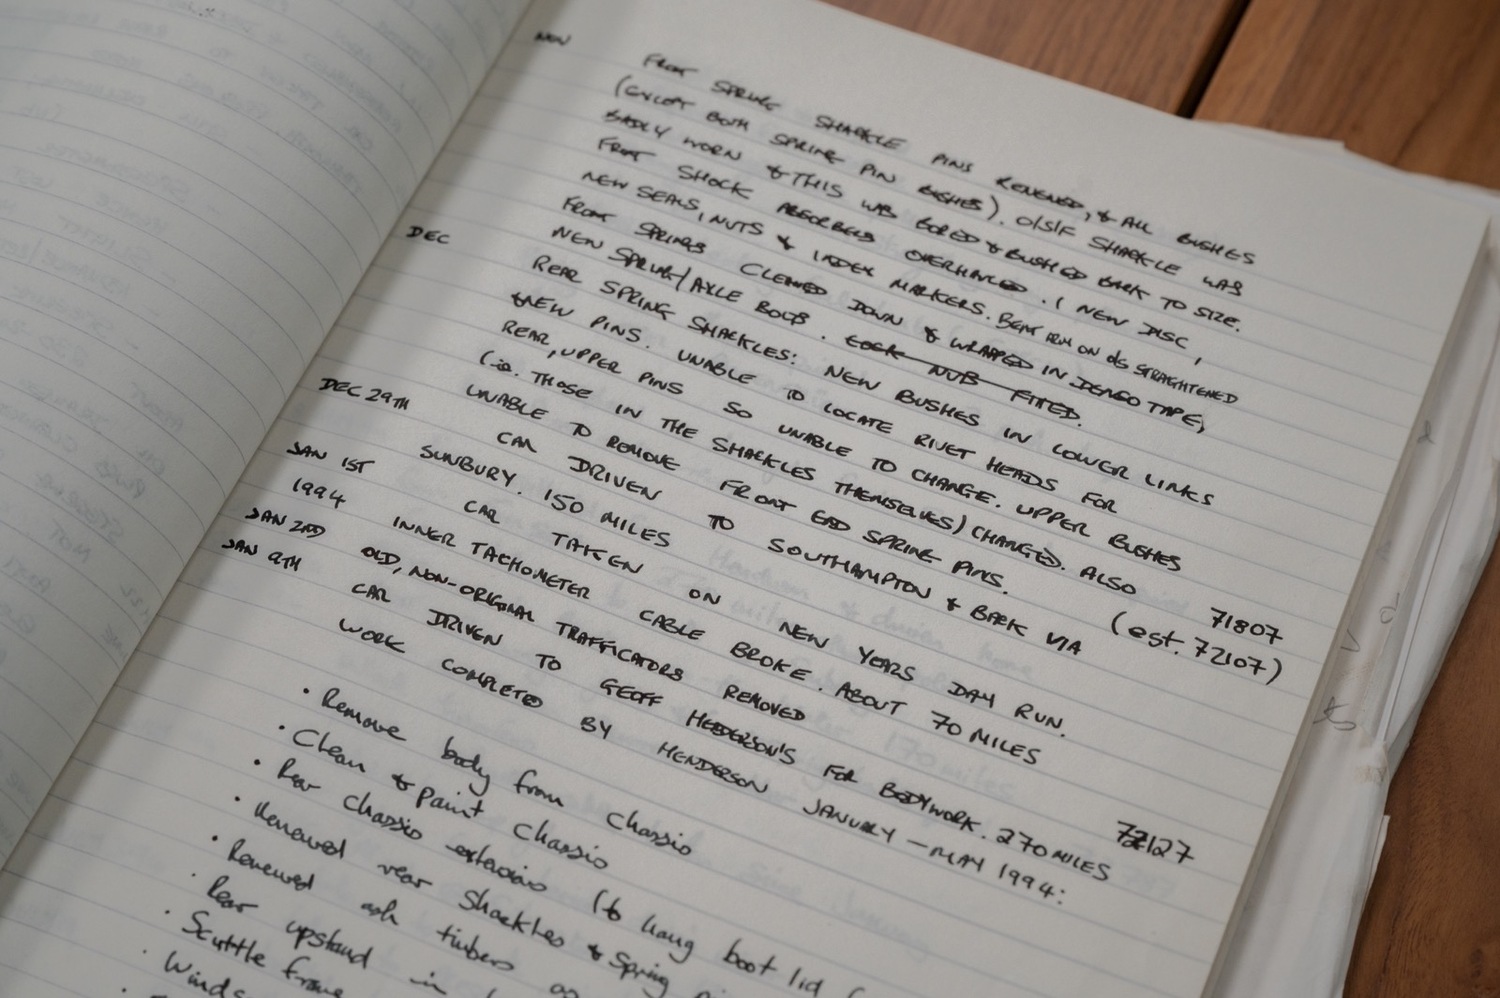 NOV FRONT SPRING SHACKLE PINS RENEWED, & ALL BUSHES
(EXCEPT BOTH SPRING PIN BUSHES). O/S/F SHACKLE WAS
BADLY WORN & THIS WAS BORED & BUSHED BACK TO SIZE.
FRONT SHOCK ABSORBERS OVERHAULED. 1 NEW DISC,
NEW SEALS, NUTS & INDEX MARKERS. BENT ARM ON O/S STRAIGHTENED
FRONT SPRINGS CLEANED DOWN & WRAPPED IN DENSO TAPE,
DEC NEW SPRING/AXLE BOLTS. LOCK NUTS FITTED.
REAR SPRING SHACKLES: NEW BUSHES IN LOWER LINKS
& NEW PINS. UNABLE TO LOCATE RIVET HEADS FOR
REAR, UPPER PINS SO UNABLE TO CHANGE. UPPER BUSHES
(i.e. THOSE IN THE SHACKLES THEMSELVES) CHANGED. ALSO
UNABLE TO REMOVE FRONT END SPRING PINS. 71807
DEC 29TH CAR DRIVEN TO SOUTHAMPTON & BACK VIA (est. 72107)
SUNBURY. 150 MILES
JAN 1ST CAR TAKEN ON NEW YEARS DAY RUN.
1994 INNER TACHOMETER CABLE BROKE. ABOUT 70 MILES
JAN 2ND OLD, NON-ORIGINAL TRAFFICATORS REMOVED
JAN 9TH CAR DRIVEN TO GEOFF HENDERSON'S FOR BODYWORK. 270 MILES 72127
WORK COMPLETED BY HENDERSON JANUARY - MAY 1994:
• Remove body from chassis
• Clean & Paint chassis
• Rear chassis extensions (to hang boot lid
• Renewed rear shackles & spring
• Renewed ash timbers
• Rear upstand in
• Scuttle frame